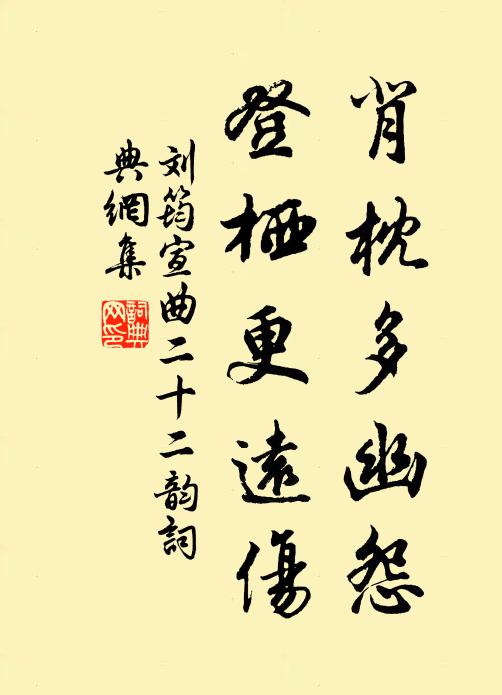 肖枕多幽怨
登栖更遠傷
刘筠宣曲二十二韵詞
典網集
詞典网印